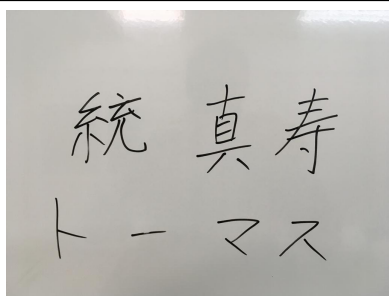 統 真 寿
トーマス